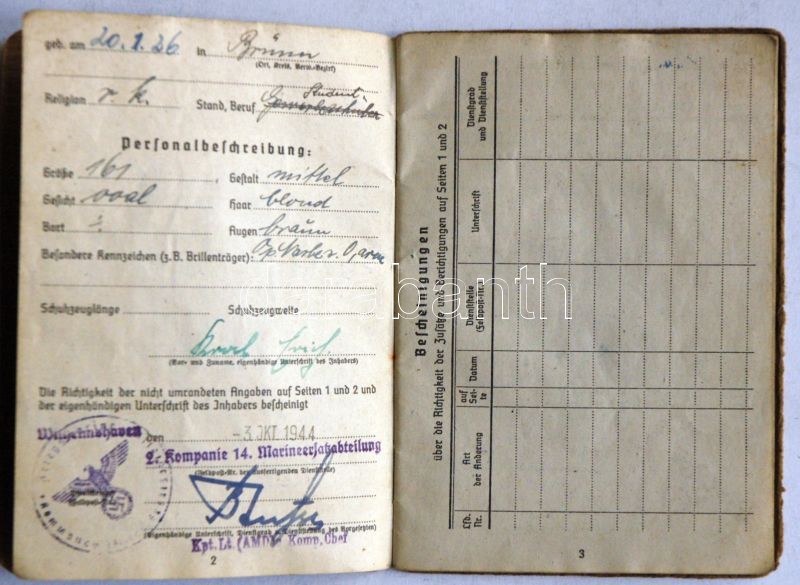 geb. am 20.1.26 in Brünn
(Ort, Kreis, Verw.-Bezirk)
Religion r. k. Stand, Beruf Student
Personalbeschreibung:
Größe 161 Gestalt mittel
Gesicht oval Haar blond
Bart ÷ Augen braun
Besondere Kennzeichen (z. B. Brillenträger):
Schuhzeuglänge Schuhzeugweite
(Vor- und Zuname, eigenhändige Unterschrift des Inhabers)
Die Richtigkeit der nicht umrandeten Angaben auf Seiten 1 und 2 und
der eigenhändigen Unterschrift des Inhabers bescheinigt
Wilhelmshaven den -3. OKT. 1944
2. Kompanie 14. Marineersatzabteilung
(Feldpost-Nr. der ausfertigenden Dienststelle)
(Eigenhändige Unterschrift, Dienstgrad u. Dienststellung des Vorgesetzten)
Kpt. Lt. (AMD) u. Komp. Chef
2
Bescheinigungen
über die Richtigkeit der Zusätze und Berichtigungen auf Seiten 1 und 2
Lfd. Nr.
Art der Änderung
auf Sei-te
Datum
Dienststelle (Feldpost-Nr.)
Unterschrift
Dienstgrad und Dienststellung
3